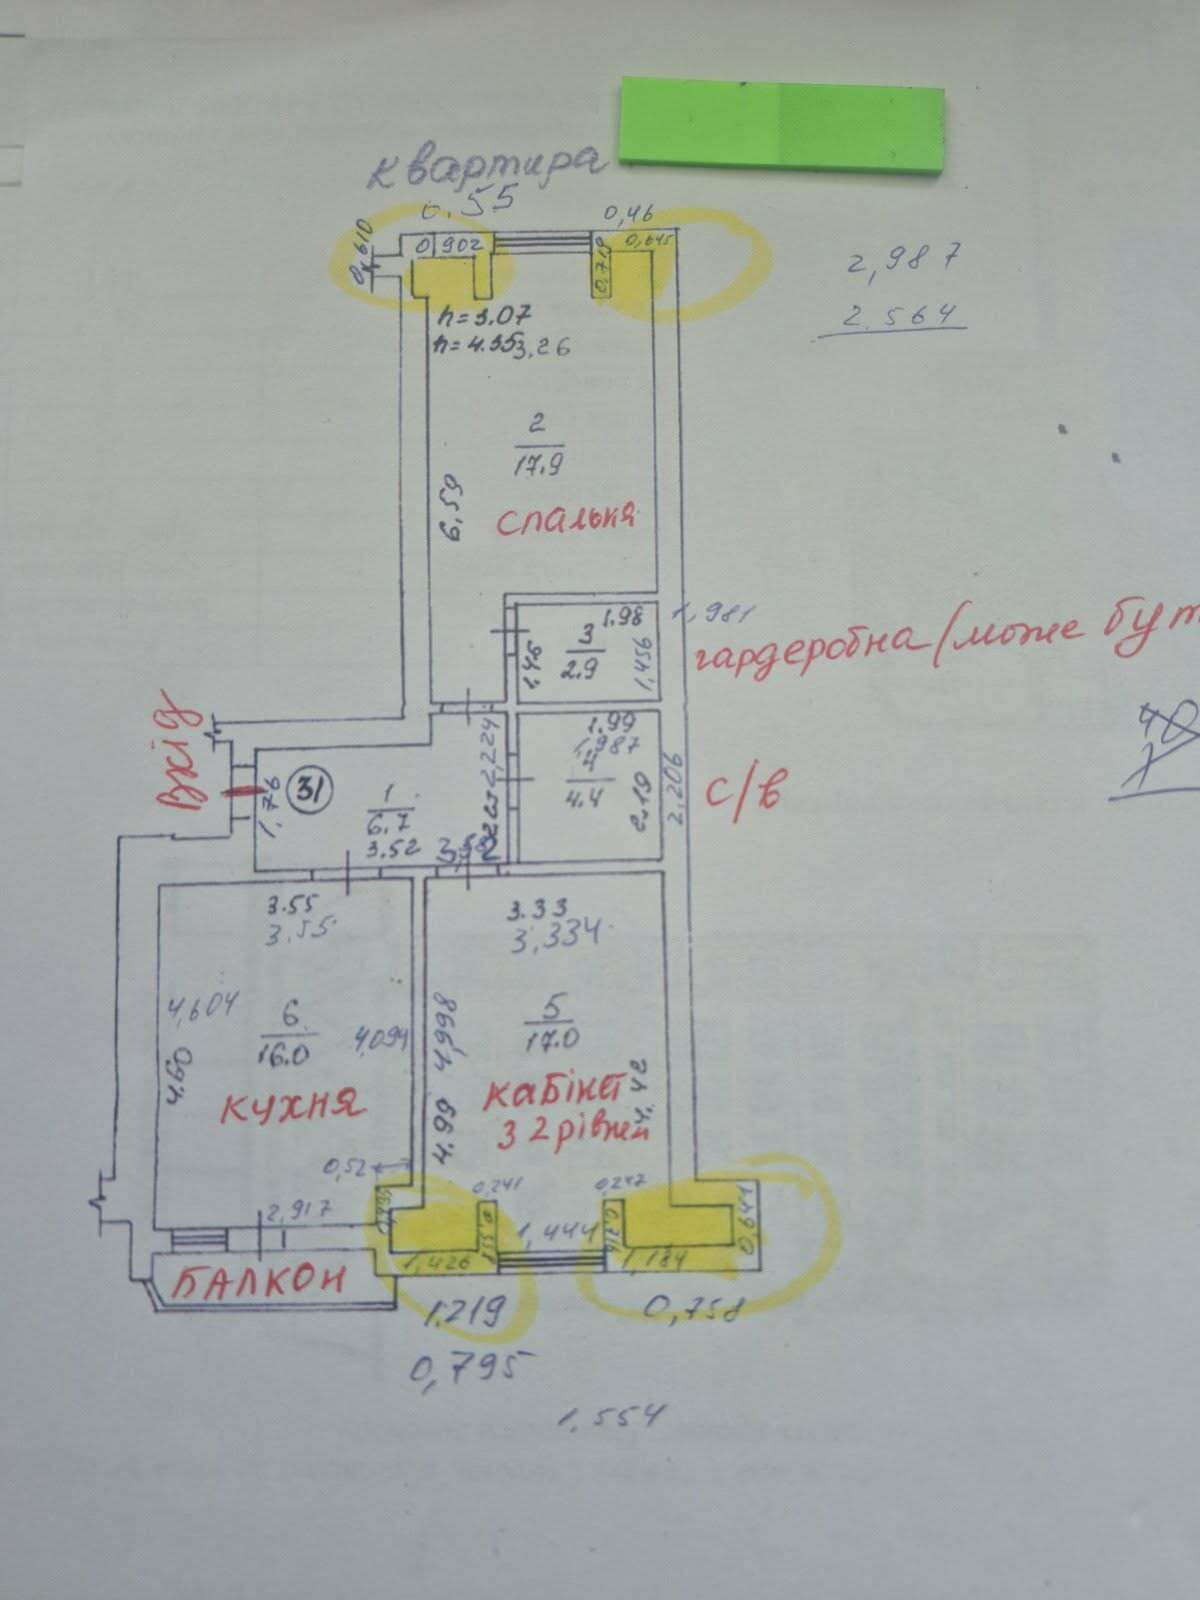 квартира
0.55
0,46
0,610
0,902
0,719
0,645
2,987
2.564
h=3.07
h=4.35
3,26
2
17.9
6,59
спальня
1.98
1,981
3
2.9
1.46
1,456
гардеробна (може бут
Вхід
31
1,76
1
6.7
3.52
2,224
1.99
1,987
4
4.4
2.19
2,206
с/в
3.55
3.55
3.33
3,334
4,604
4.60
6
16.0
4,094
кухня
4,998
4.99
5
17.0
4.42
кабінет
з 2 рівнем
0,52
2,917
0,241
0,247
1,444
0,716
0,641
1,426
1,184
БАЛКОН
1.219
0,758
0,795
1.554